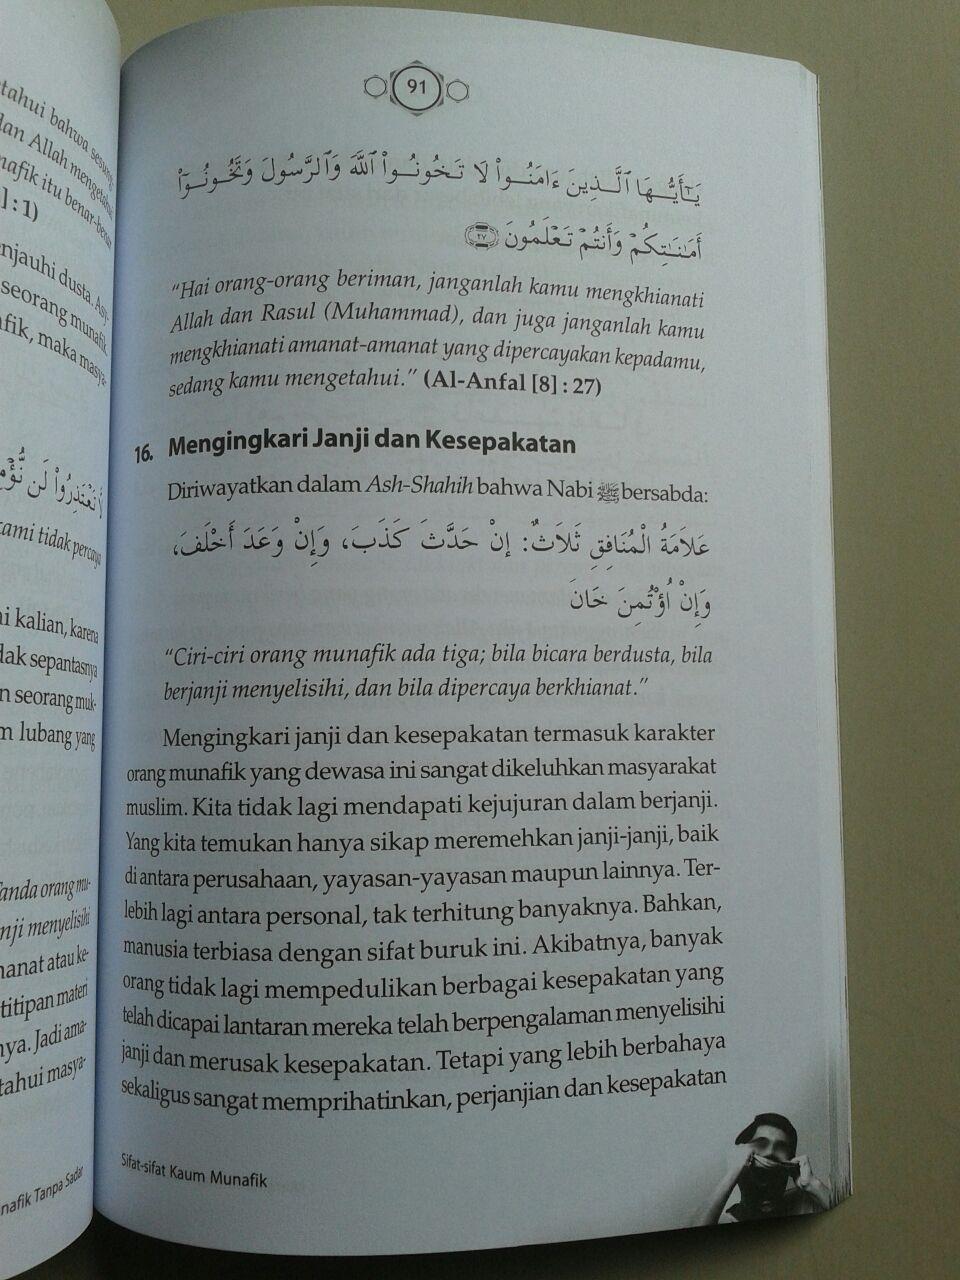 tahui bahwa sesung-
dan Allah mengetahui
nafik itu benar-benar
] : 1)
enjauhi dusta.
seorang munafik
afik, maka masya-
ami tidak percaya
ni kalian, karena
dak sepantasnya
n seorang muk-
m lubang yang
Tanda orang mu-
nji menyelisihi
manat atau ke-
titipan materi
nya. Jadi ama-
tahui masya-
nafik Tanpa Sadar
91
يَـٰٓأَيُّهَا ٱلَّذِينَ ءَامَنُوا۟ لَا تَخُونُوا۟ ٱللَّهَ وَٱلرَّسُولَ وَتَخُونُوٓا۟
أَمَـٰنَـٰتِكُمْ وَأَنتُمْ تَعْلَمُونَ ٢٧
“Hai orang-orang beriman, janganlah kamu mengkhianati
Allah dan Rasul (Muhammad), dan juga janganlah kamu
mengkhianati amanat-amanat yang dipercayakan kepadamu,
sedang kamu mengetahui.” (Al-Anfal [8] : 27)
16. Mengingkari Janji dan Kesepakatan
Diriwayatkan dalam Ash-Shahih bahwa Nabi ﷺ bersabda:
عَلَامَةُ الْمُنَافِقِ ثَلَاثٌ: إِنْ حَدَّثَ كَذَبَ، وَإِنْ وَعَدَ أَخْلَفَ،
وَإِنْ اُؤْتُمِنَ خَانَ
“Ciri-ciri orang munafik ada tiga; bila bicara berdusta, bila
berjanji menyelisihi, dan bila dipercaya berkhianat.”
Mengingkari janji dan kesepakatan termasuk karakter
orang munafik yang dewasa ini sangat dikeluhkan masyarakat
muslim. Kita tidak lagi mendapati kejujuran dalam berjanji.
Yang kita temukan hanya sikap meremehkan janji-janji, baik
di antara perusahaan, yayasan-yayasan maupun lainnya. Ter-
lebih lagi antara personal, tak terhitung banyaknya. Bahkan,
manusia terbiasa dengan sifat buruk ini. Akibatnya, banyak
orang tidak lagi mempedulikan berbagai kesepakatan yang
telah dicapai lantaran mereka telah berpengalaman menyelisihi
janji dan merusak kesepakatan. Tetapi yang lebih berbahaya
sekaligus sangat memprihatinkan, perjanjian dan kesepakatan
Sifat-sifat Kaum Munafik